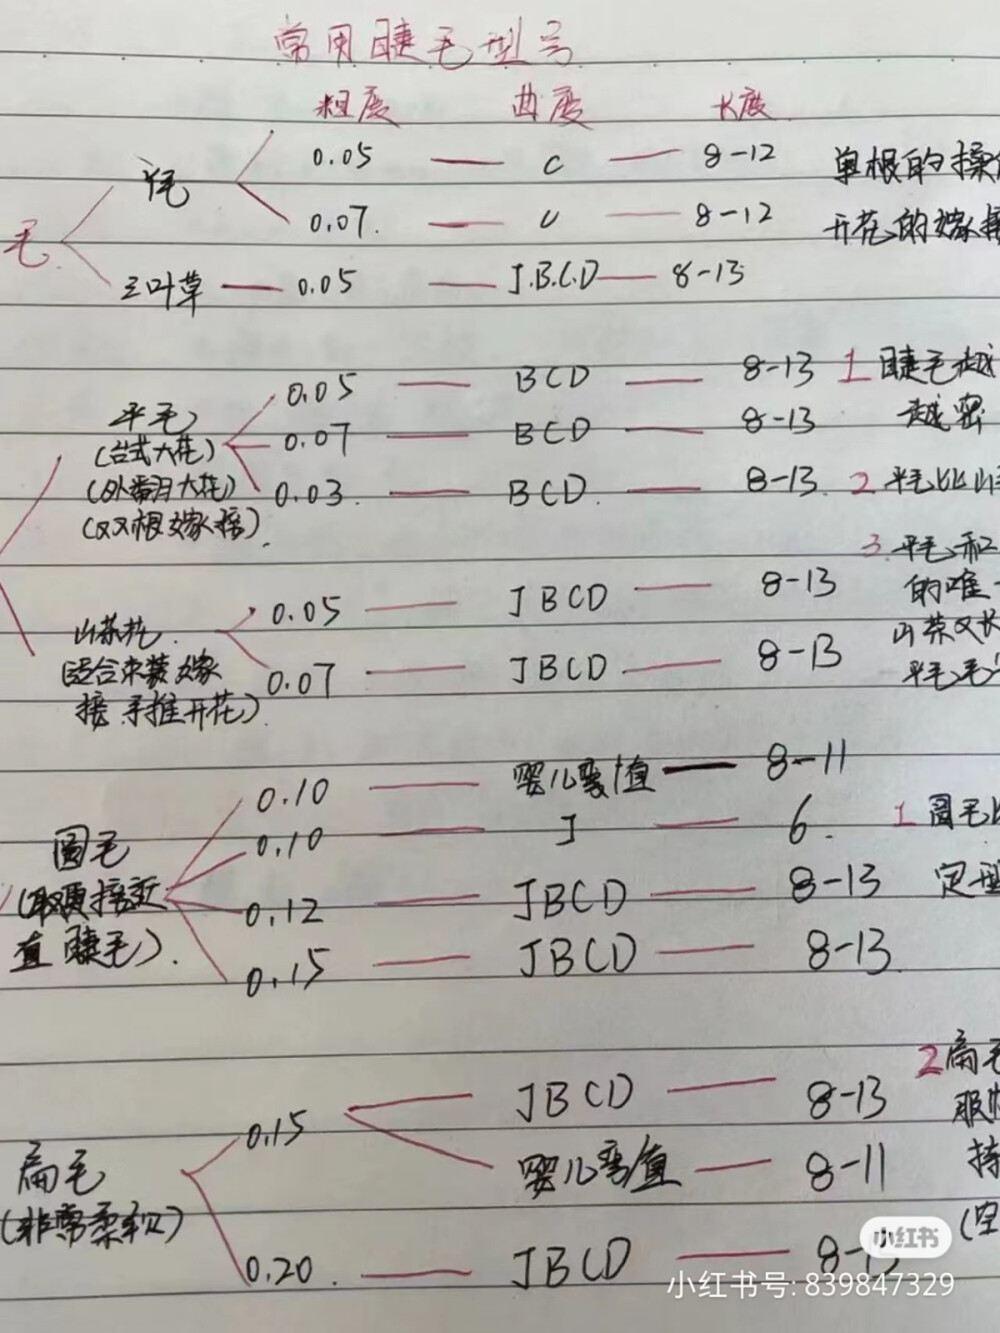 常用睫毛型号
粗度 曲度 长度
丫毛 0.05 C 8-12 单根的
毛 0.07. C 8-12 开花的嫁接
三叶草 0.05 J.B.C.D 8-13
0.05 BCD 8-13 1 睫毛越
平毛 0.07 BCD 8-13 越密
(台式大花)
(外番月大花) 0.03. BCD. 8-13. 2 平毛比山
(双双根嫁接).
3. 平毛和
0.05 JBCD 8-13 的唯一
山茶花. 山茶又长
(适合束装嫁 0.07 JBCD 8-13 平毛毛
接.手推开花)
0.10 婴儿弯/直 8-11
圆毛 0.10 J 6. 1 圆毛比
(取硬接近 0.12 JBCD 8-13 定型
直睫毛). 0.15 JBCD 8-13.
2 扁毛
0.15 JBCD 8-13 服帖
扁毛 婴儿弯/直 8-11 持
(非常柔软) (空
0.20. JBCD 8-13
小红书
小红书号: 839847329